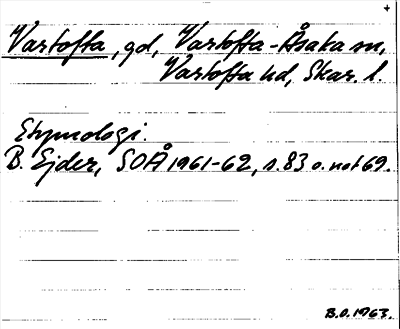 Vartofta, gd, Vartofta-Åsaka sn,
Vartofta hd, Skar. l.
Etymologi.
B. Ejder, SOÅ 1961-62, s. 83 o. not 69.
B.O. 1963.